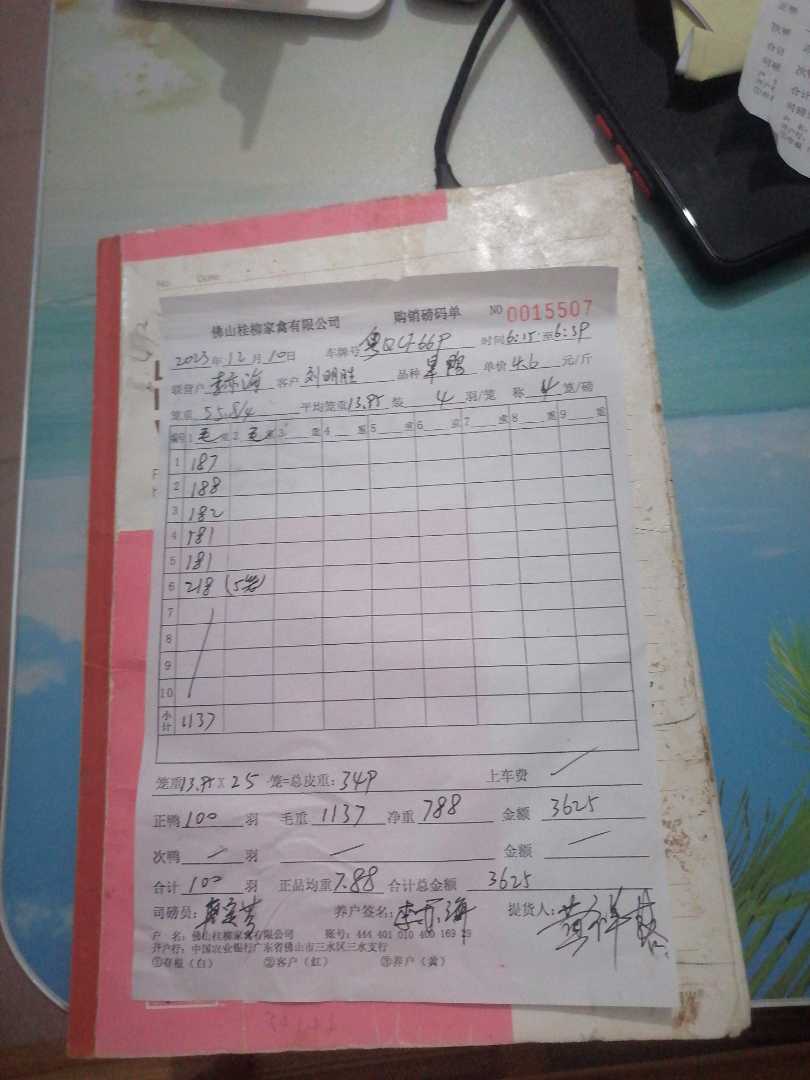 No. Date
佛山桂柳家禽有限公司 购销磅码单 NO 0015507
2023年12月10日 车牌号 时间6:15至6:39
联营户 李亦海 客户 刘明胜 品种 单价4.6元/斤
笼重 55.8/4 平均笼重13.95 装 4 羽/笼 称 4 笼/磅
编号 1 毛重 2 毛重 3 重 4 重 5 重 6 重 7 重 8 重 9 重
1 187
2 188
3 182
4 181
5 181
6 218 (5笼)
7
8
9
10
小计 1137
笼重13.95×25 笼=总皮重:349 上车费
正鸭 100 羽 毛重 1137 净重 788 金额 3625
次鸭 羽 金额
合计 100 羽 正品均重7.88 合计总金额 3625
司磅员: 养户签名:李亦海 提货人:
户 名:佛山桂柳家禽有限公司 账号:444 401 010 400 169 29
开户行:中国农业银行广东省佛山市三水区三水支行
①存根(白) ②客户(红) ③养户(黄)